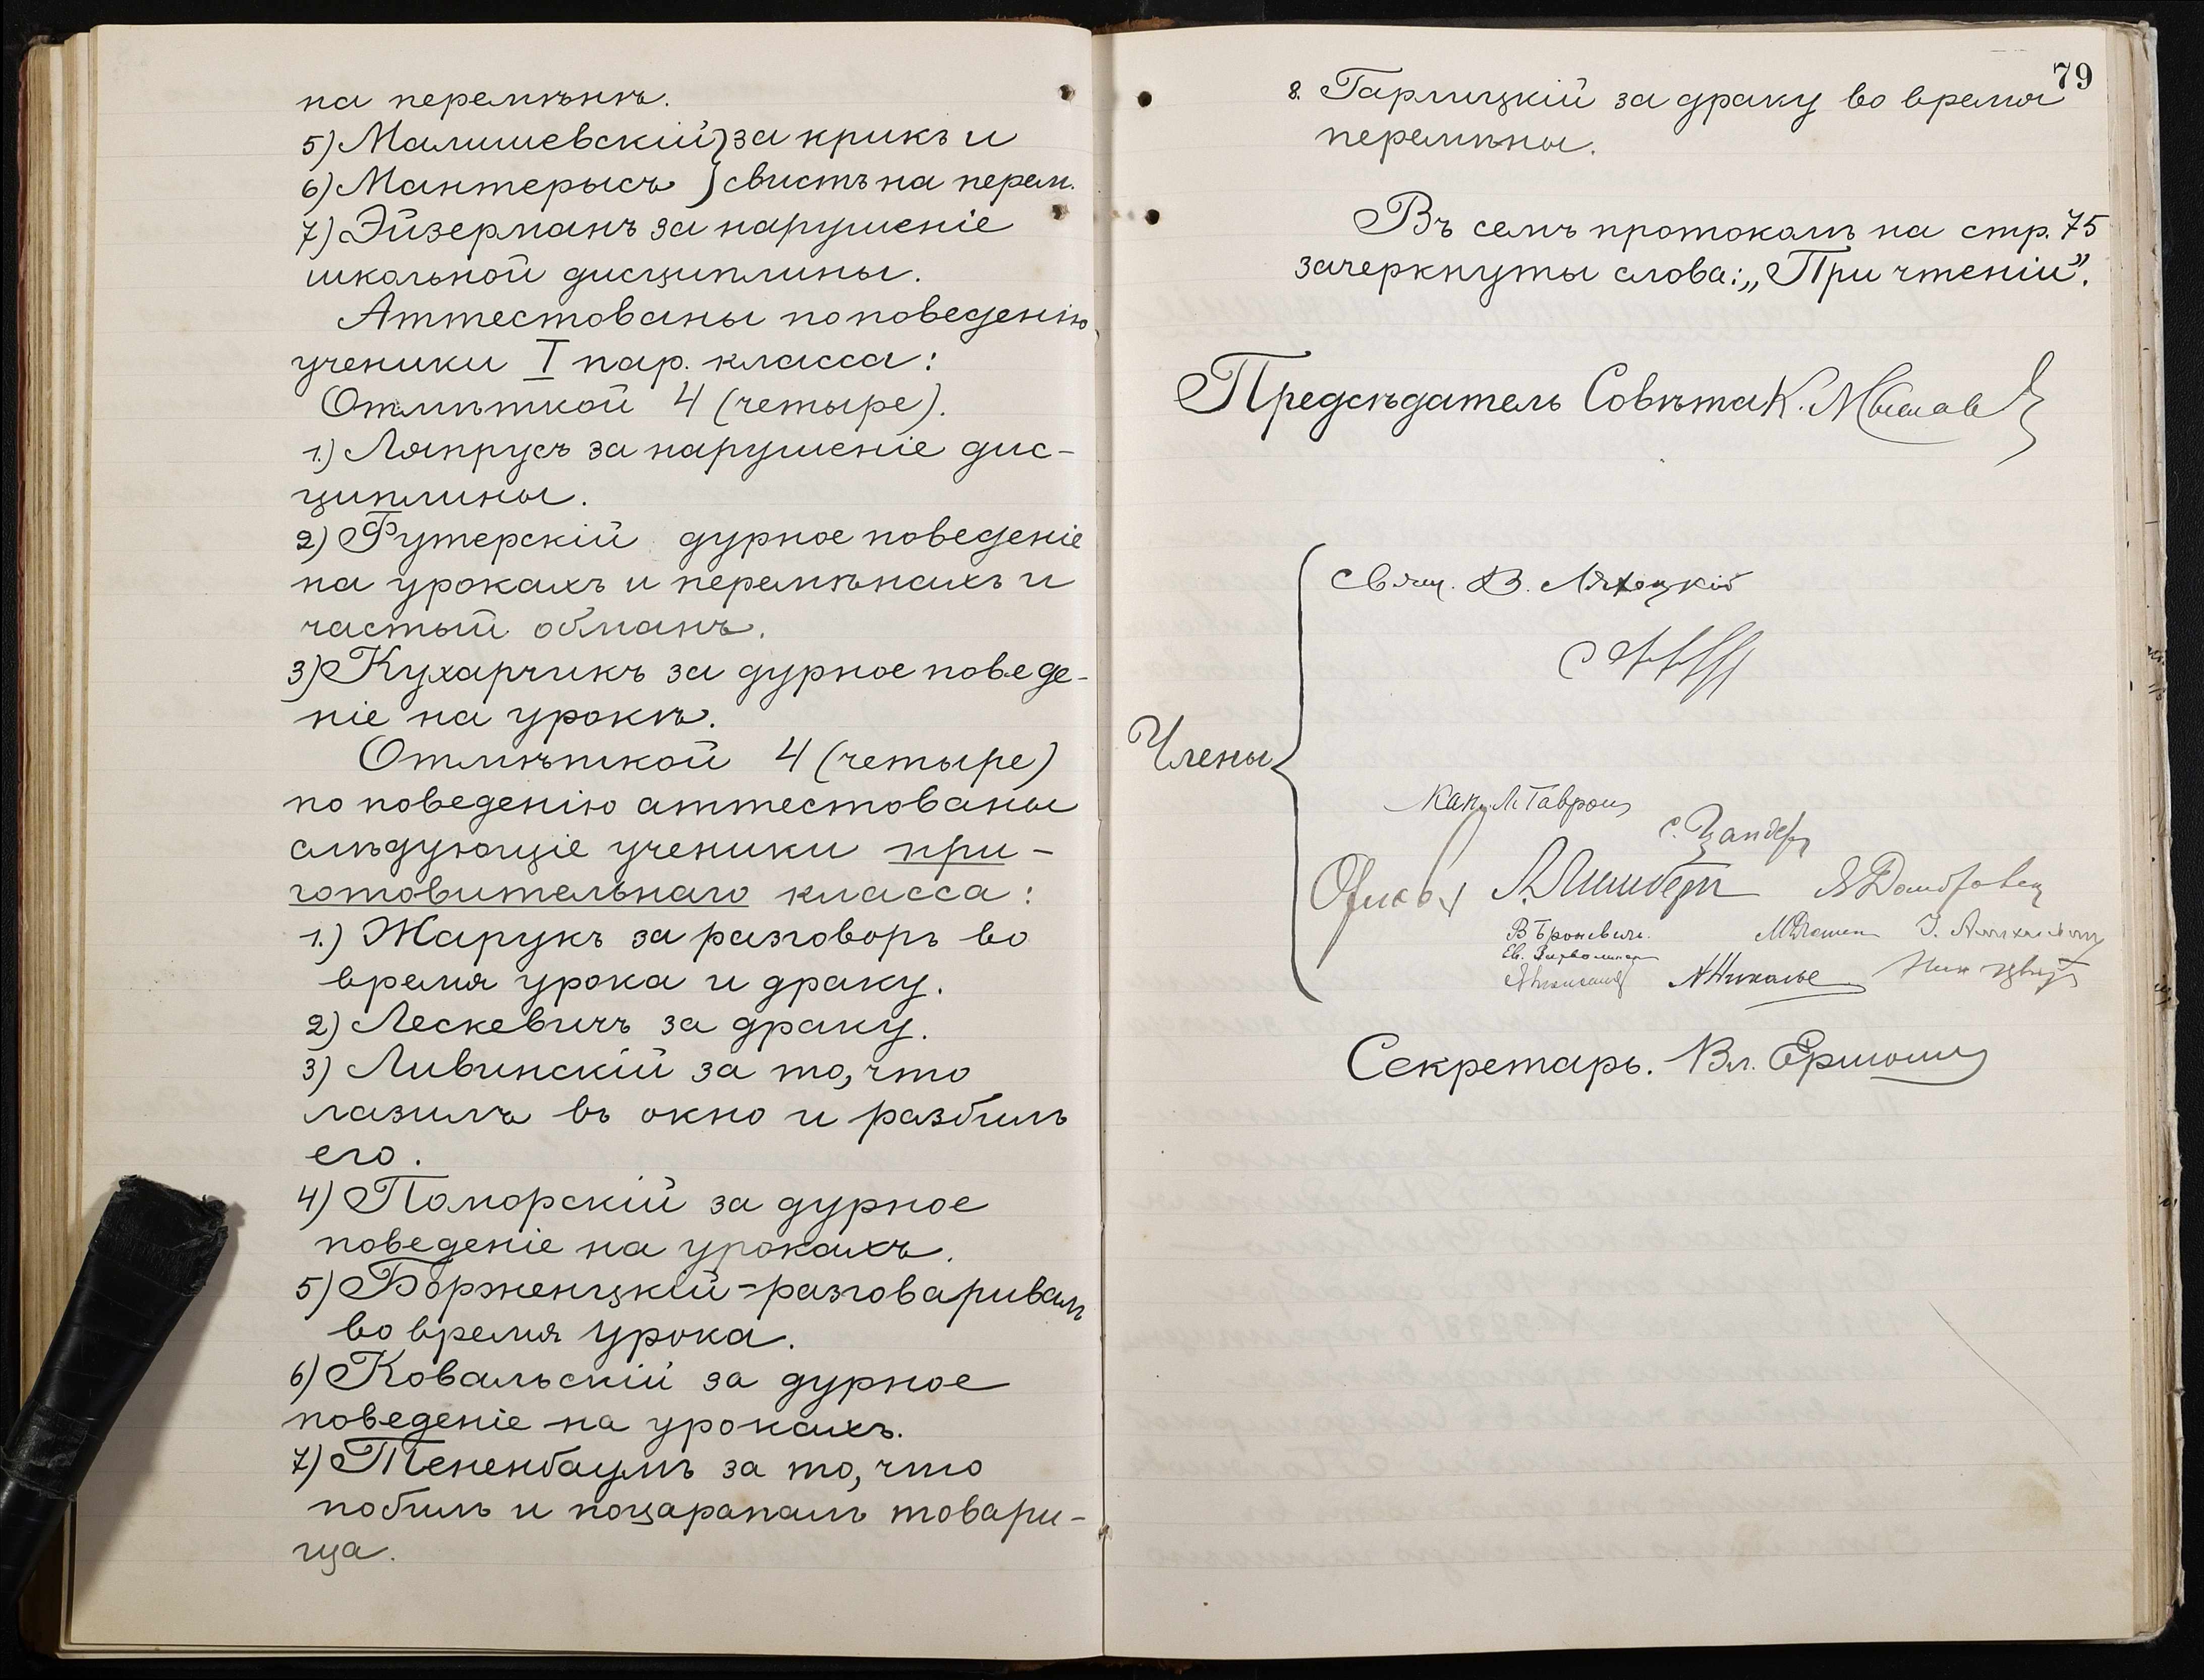 на перемѣнѣ.
5) Малишевскій } за крикъ и
6) Мантерысъ } свистъ на перем.
7) Эйзерманъ за нарушеніе
школьной дисциплины.
Аттестованы по поведенію
ученики I пар. класса:
Отмѣткой 4 (четыре).
1.) Ляпрусъ за нарушеніе дис-
циплины.
2) Футерскій дурное поведеніе
на урокахъ и перемѣнахъ и
частый обманъ.
3) Кухарчикъ за дурное поведе-
ніе на урокѣ.
Отмѣткой 4 (четыре)
по поведенію аттестованы
слѣдующіе ученики при-
готовительнаго класса:
1.) Жарукъ за разговоръ во
время урока и драку.
2) Лескевичъ за драку.
3) Ливинскій за то, что
лазилъ въ окно и разбилъ
его.
4) Поморскій за дурное
поведеніе на урокахъ.
5) Борженцкій - разговаривалъ
во время урока.
6) Ковальскій за дурное
поведеніе на урокахъ.
7) Тененбаумъ за то, что
побилъ и поцарапалъ товари-
ща.
79
8. Гарлицкій за драку во время
перемѣны.
Въ семъ протоколѣ на стр. 75
зачеркнуты слова: „При чтеніи".
Предсѣдатель Совѣта К.
Члены
Свящ. В. Ляхоцкій
С. Цандер
Секретарь. Вл.